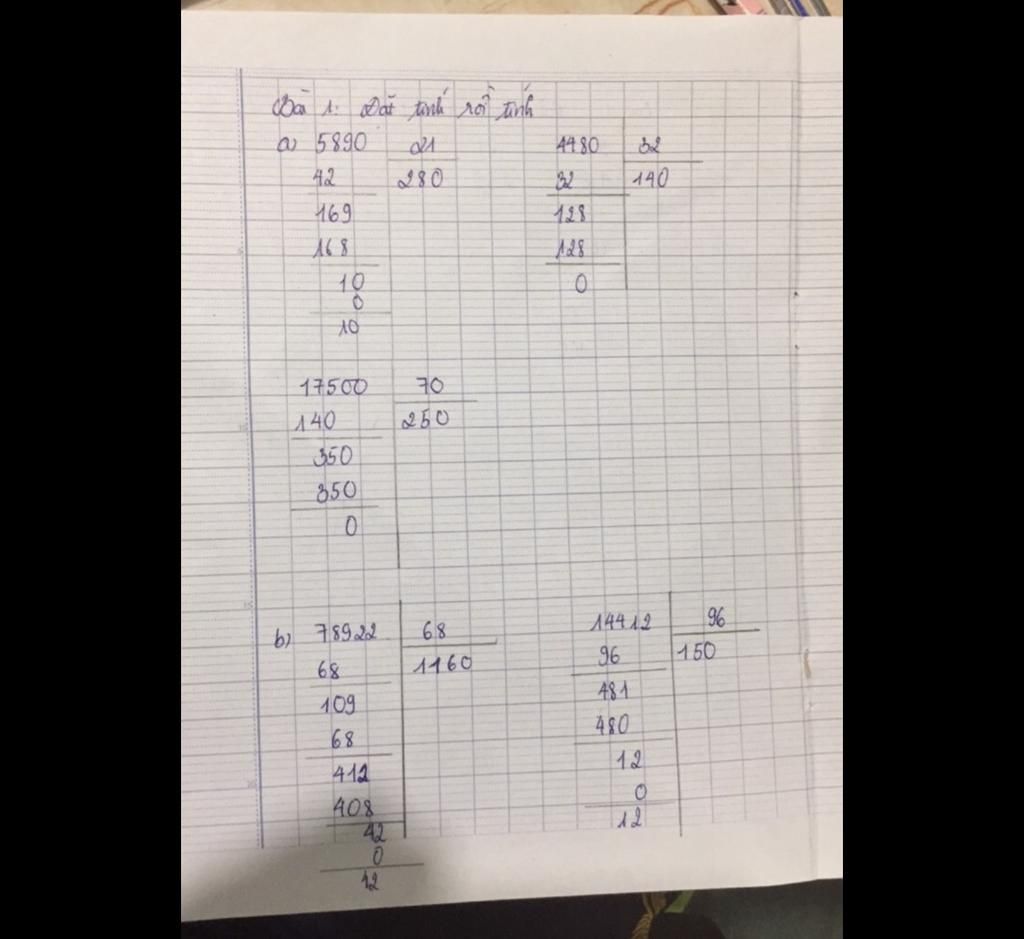 Bài 1: Đặt tính rồi tính
a) 5890 21
42 280
169
168
10
0
10
4480 32
32 140
128
128
0
17500 70
140 250
350
350
0
b) 78922 68
68 1160
109
68
412
408
42
0
42
14412 96
96 150
481
480
12
0
12